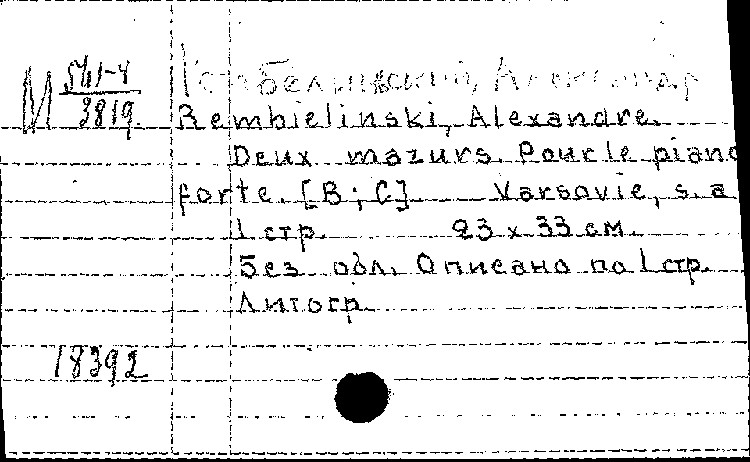 М 541-4
3819.
Рембелинский, Александр
Rembielinski, Alexandre.
Deux mazurs. Pour le piano
forte. [B; C] Varsovie, s. a
1 стр. 23 x 33 см.
Без обл. Описано по 1 стр.
Литогр.
18392